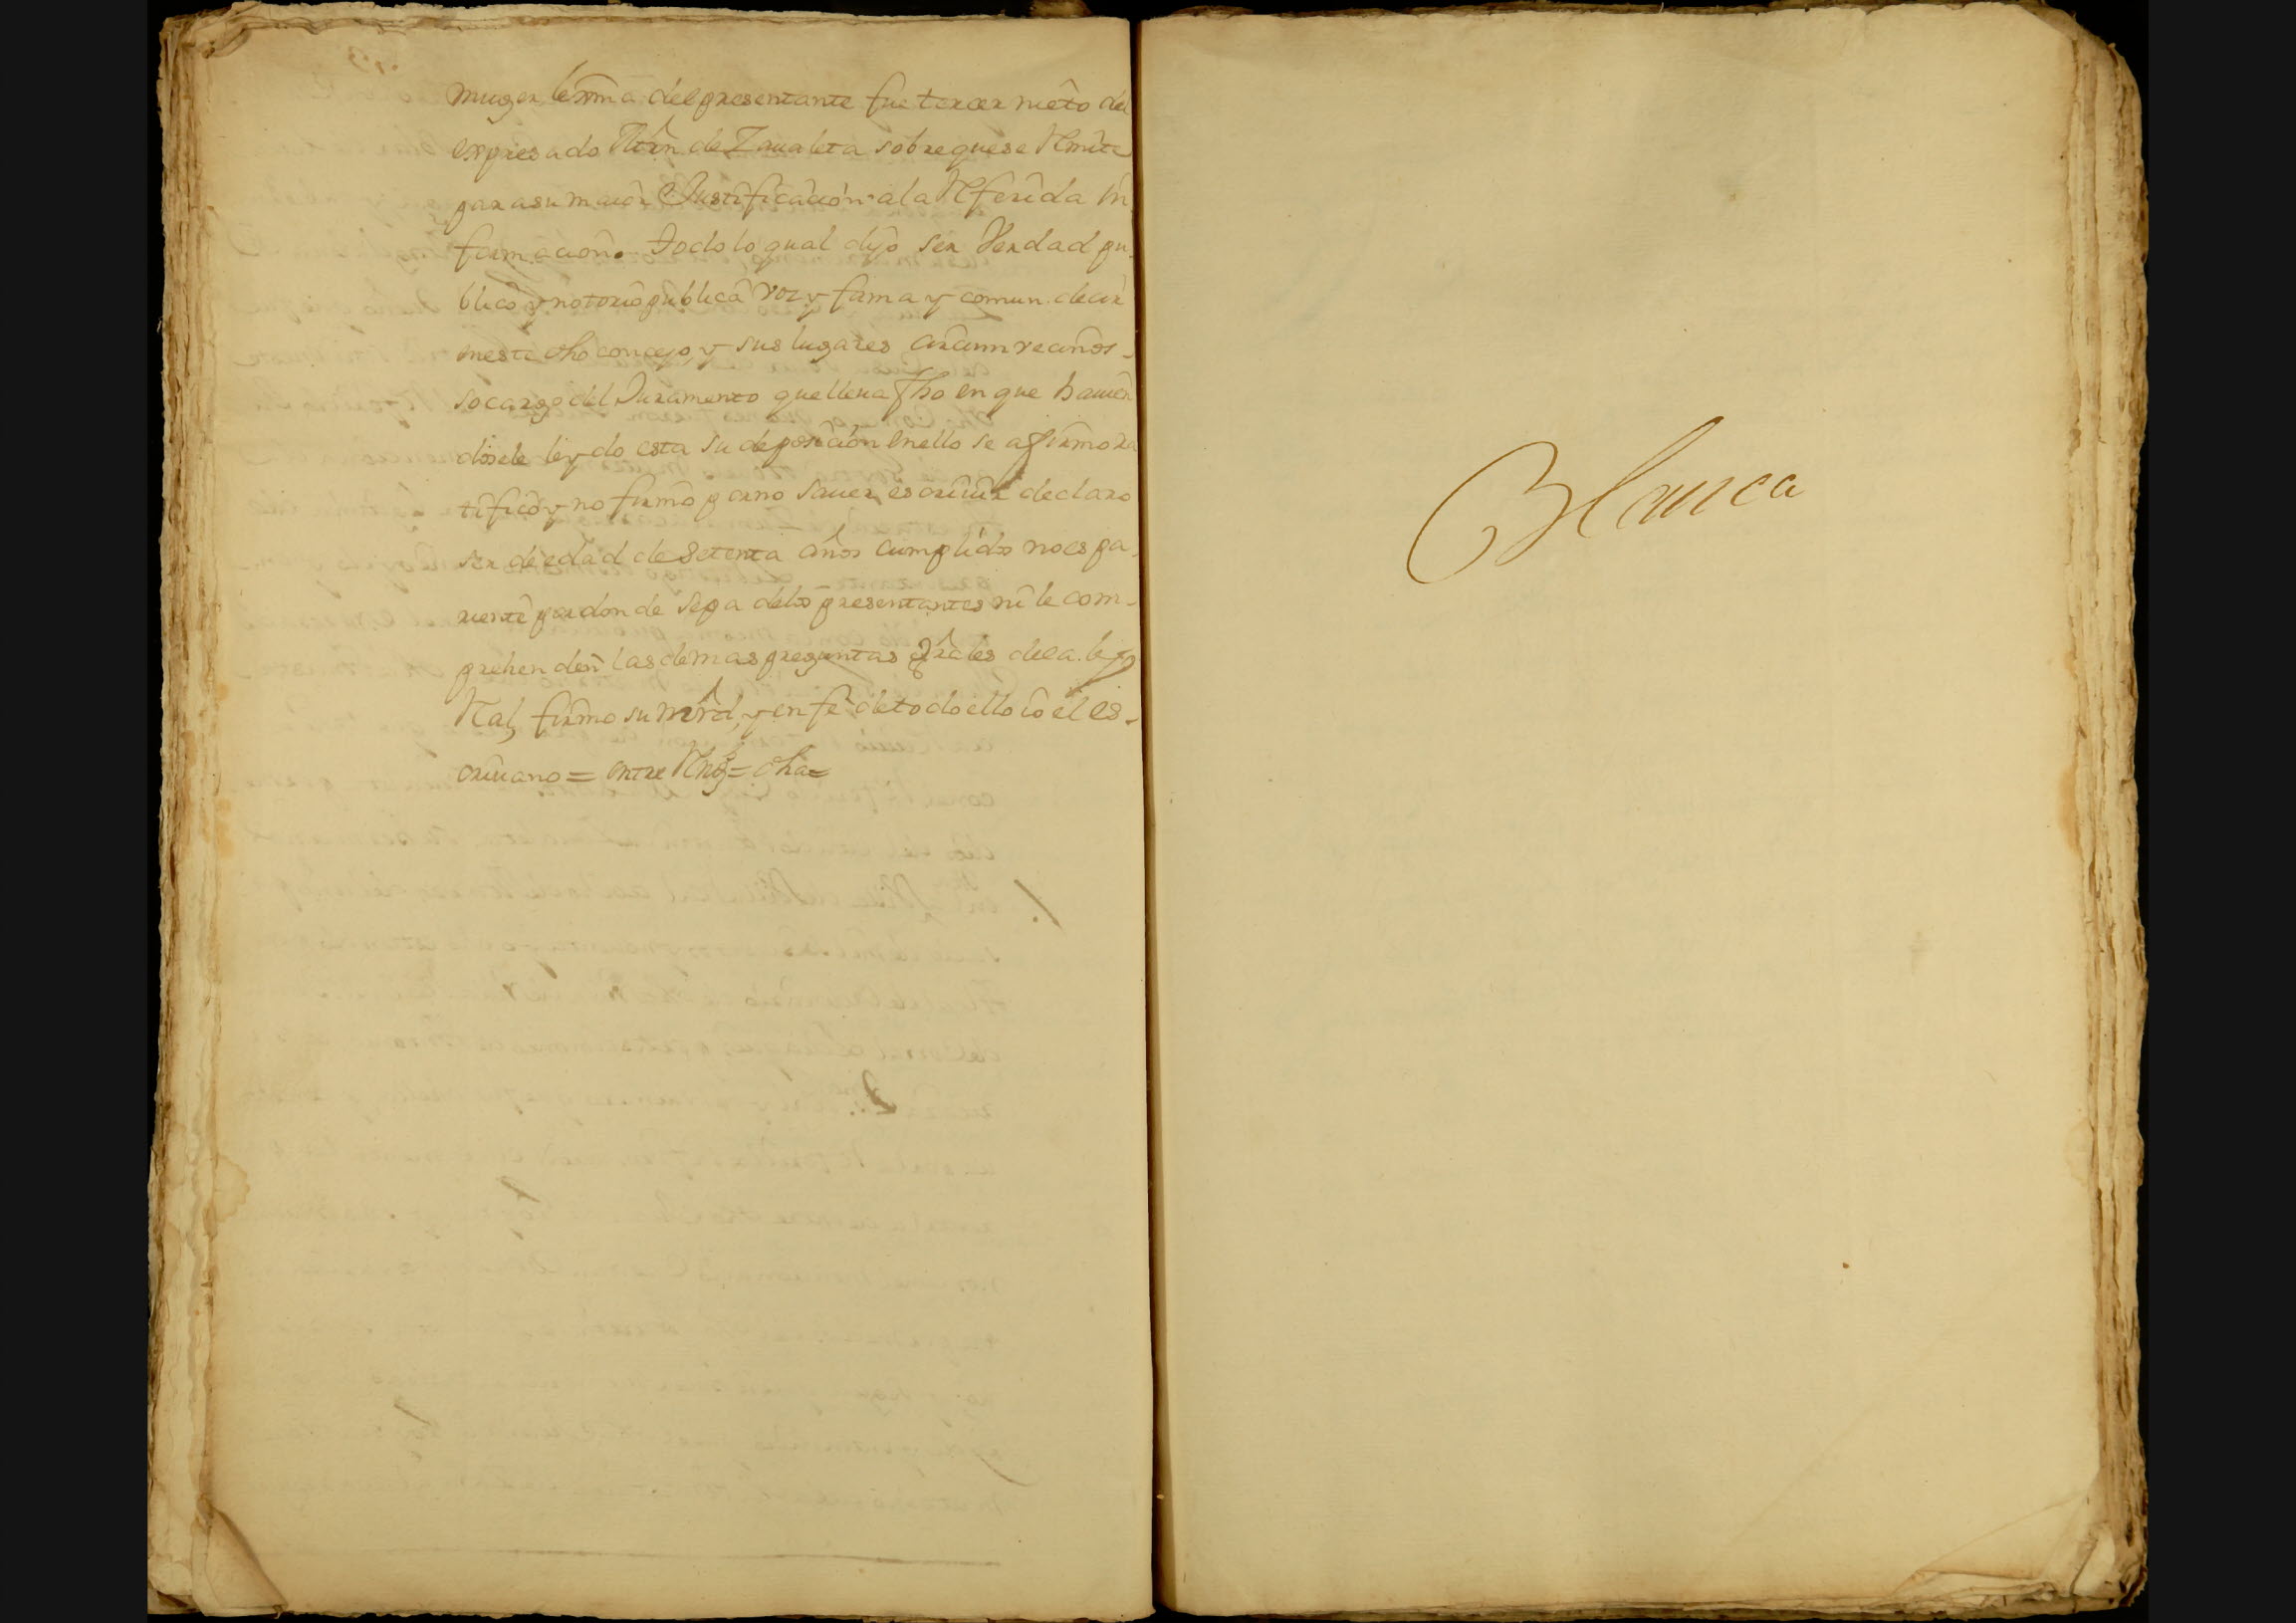 muger lexma del presentante fue tercer nieto del
expresado Mrn de Zaualeta sobre que se Rmite
para su maior Justificacion a la Rferida in
formacion. Todo lo qual dijo ser Verdad pu-
blico y notorio publica voz y fama y comun decir
en este dho concejo, y sus lugares circumvecinos -
so cargo del Juramento que lleua fho en que hauien
dosele leydo esta su deposicion en ello se afirmo ra
tifico y no firmo por no sauer escriuir declaro
ser de edad de setenta años cumplidos no es pa-
riente por donde sepa de los presentantes ni le com-
prehenden las demas preguntas Grales de la ley
Ral, firmo su mrd, y en fe de todo ello io el es-
criuano = entre Rnes = dha =
Blanca